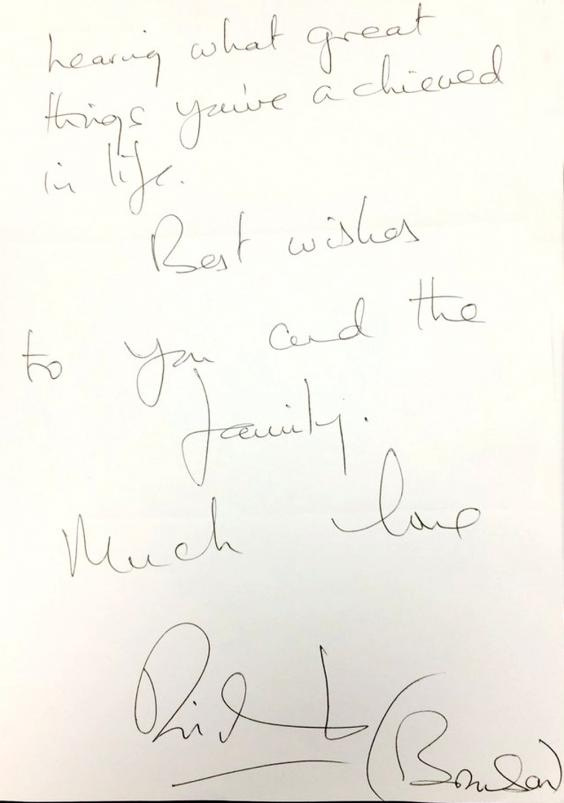 hearing what great
things you've achieved
in life.
Best wishes
to you and the
family.
Much love
Richard
(Branson)